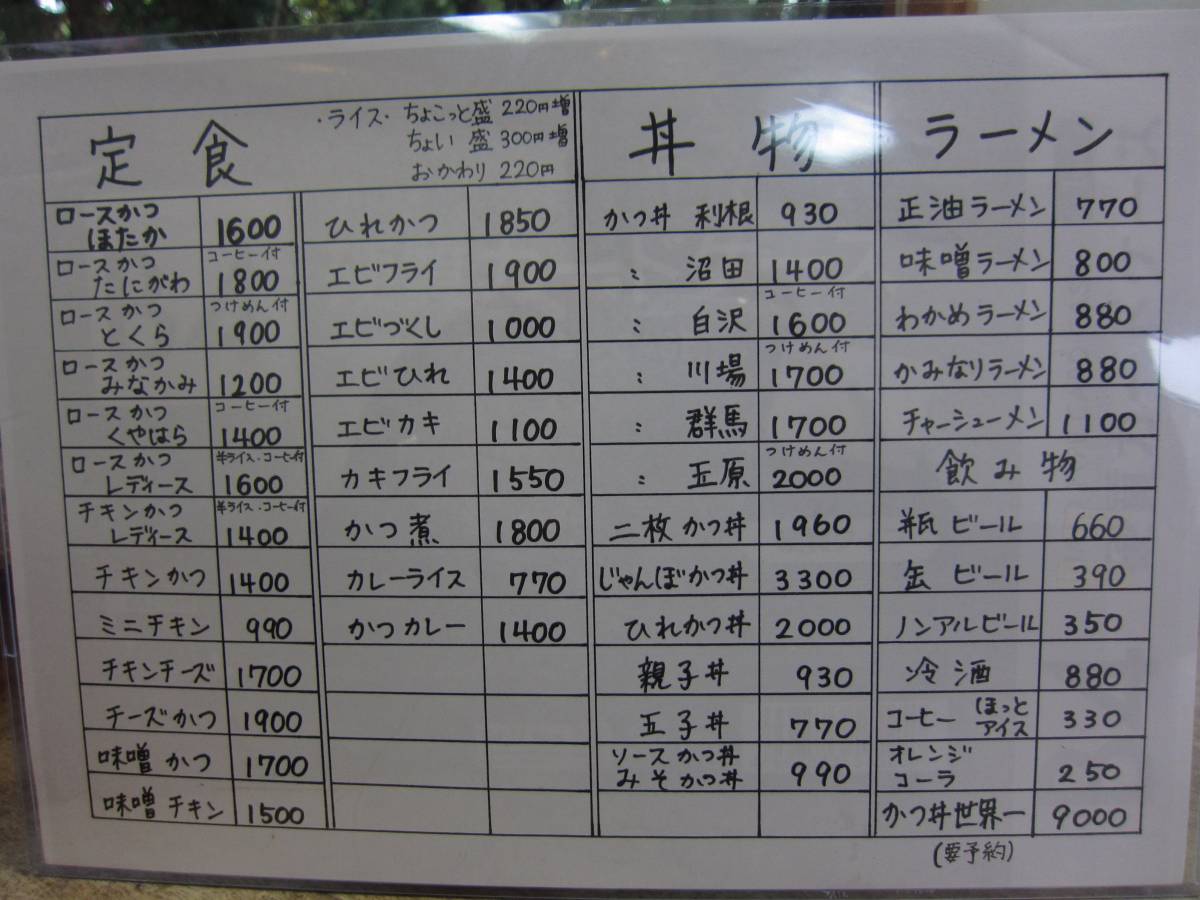 定食
・ライス・ちょこっと盛 220円増
ちょい 盛 300円増
おかわり 220円
ロースかつ
ほたか 1600
コーヒー付
ロースかつ
たにがわ 1800
つけめん付
ロースかつ
とくら 1900
ロースかつ
みなかみ 1200
コーヒー付
ロースかつ
くやはら 1400
半ライス・コーヒー付
ロースかつ
レディース 1600
半ライス・コーヒー付
チキンかつ
レディース 1400
チキンかつ 1400
ミニチキン 990
チキンチーズ 1700
チーズかつ 1900
味噌かつ 1700
味噌チキン 1500
ひれかつ 1850
エビフライ 1900
エビづくし 1000
エビひれ 1400
エビカキ 1100
カキフライ 1550
かつ煮 1800
カレーライス 770
かつカレー 1400
丼物
かつ丼 利根 930
: 沼田 1400
コーヒー付
: 白沢 1600
つけめん付
: 川場 1700
: 群馬 1700
つけめん付
: 玉原 2000
二枚かつ丼 1960
じゃんぼかつ丼 3300
ひれかつ丼 2000
親子丼 930
玉子丼 770
ソースかつ丼
みそかつ丼 990
ラーメン
正油ラーメン 770
味噌ラーメン 800
わかめラーメン 880
かみなりラーメン 880
チャーシューメン 1100
飲み物
瓶ビール 660
缶ビール 390
ノンアルビール 350
冷酒 880
コーヒー ほっと
アイス 330
オレンジ
コーラ 250
かつ丼世界一 9000
(要予約)